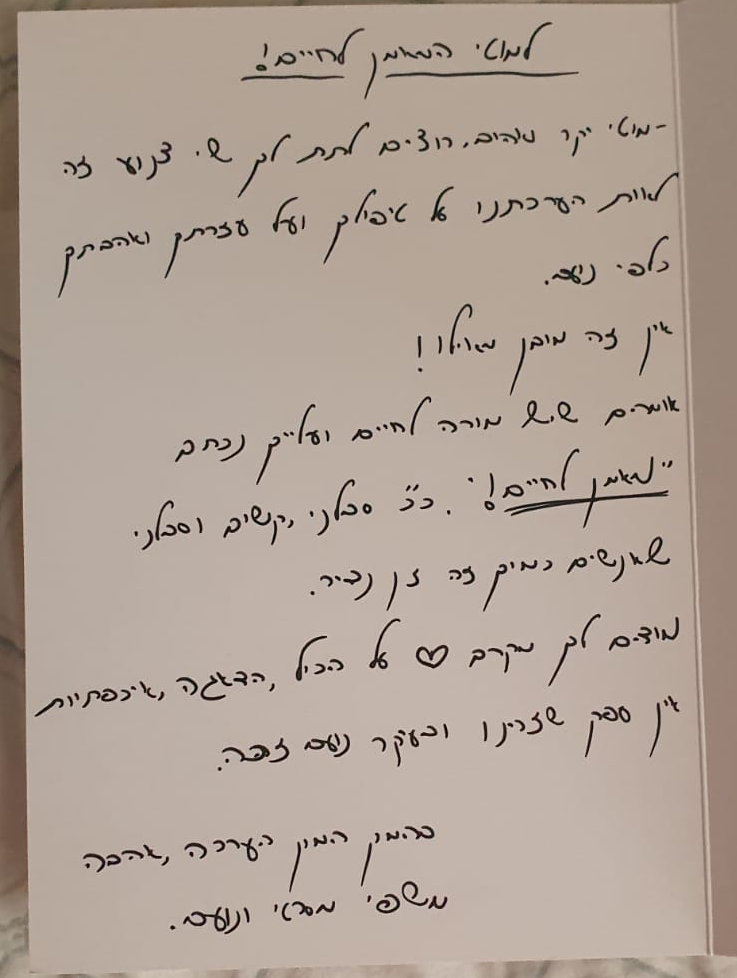 למוטי המאמן לחיים!
-מוטי יקר ואהוב, רוצים לתת לך שי צנוע זה
לאות הערכתנו על טיפולך ועל עזרתך ואהבתך
כלפי נועם.
אין זה מובן מאליו!
אומרים שיש מורה לחיים ועלייך נכתב
"מאמן לחיים!". כ"כ סבלני, קשוב וסבלני
שאנשים כמוך זה זן נדיר.
מודים לך מקרב ♡ על הכול, הדאגה, איכפתיות
אין ספק שזכינו ובעיקר נועם זכה.
בהמון המון הערכה, אהבה
ונועם.